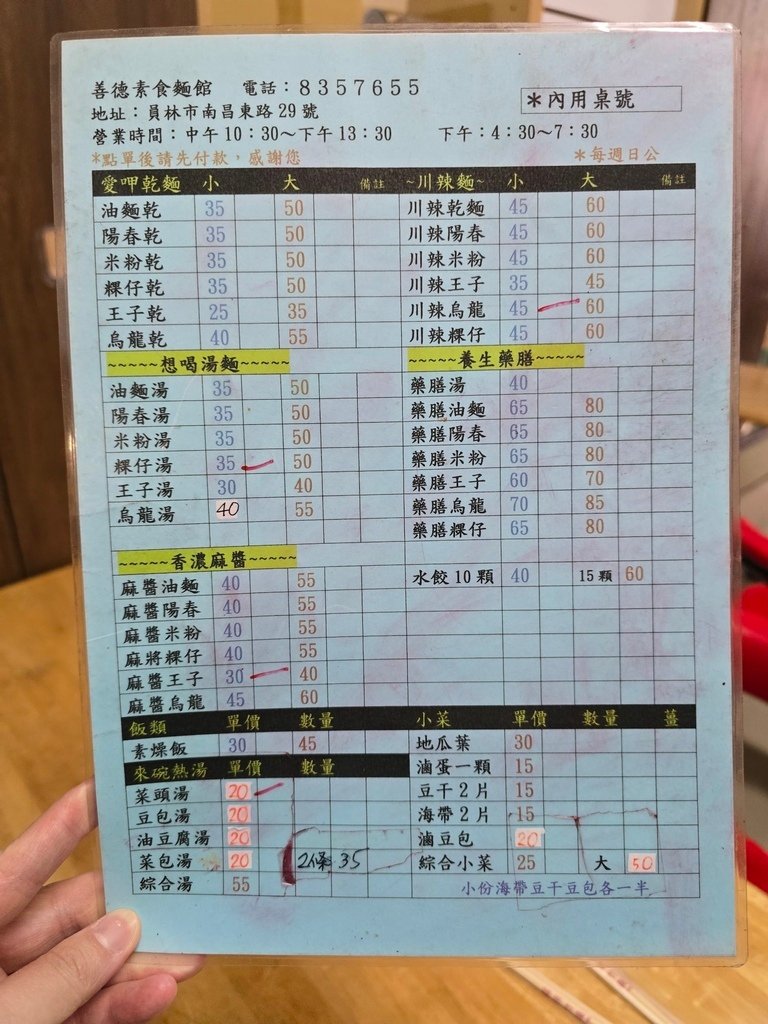 善德素食麵館 電話：8357655
＊內用桌號
地址：員林市南昌東路29號
營業時間：中午10：30～下午13：30 下午：4：30～7：30
*點單後請先付款，感謝您 *每週日公
愛呷乾麵 小 大 備註 ~川辣麵~ 小 大 備註
油麵乾 35 50 川辣乾麵 45 60
陽春乾 35 50 川辣陽春 45 60
米粉乾 35 50 川辣米粉 45 60
粿仔乾 35 50 川辣王子 35 45
王子乾 25 35 川辣烏龍 45 60
烏龍乾 40 55 川辣粿仔 45 60
~~~~~想喝湯麵~~~~~ ~~~~~養生藥膳~~~~~
油麵湯 35 50 藥膳湯 40
陽春湯 35 50 藥膳油麵 65 80
米粉湯 35 50 藥膳陽春 65 80
粿仔湯 35 50 藥膳米粉 65 80
王子湯 30 40 藥膳王子 60 70
烏龍湯 40 55 藥膳烏龍 70 85
藥膳粿仔 65 80
~~~~~香濃麻醬~~~~~
麻醬油麵 40 55 水餃10顆 40 15顆 60
麻醬陽春 40 55
麻醬米粉 40 55
麻將粿仔 40 55
麻醬王子 30 40
麻醬烏龍 45 60
飯類 單價 數量 小菜 單價 數量 薑
素燥飯 30 45 地瓜葉 30
來碗熱湯 單價 數量 滷蛋一顆 15
菜頭湯 20 豆干2片 15
豆包湯 20 海帶2片 15
油豆腐湯 20 滷豆包 20
菜包湯 20 35 綜合小菜 25 大 50
綜合湯 55 小份海帶豆干豆包各一半